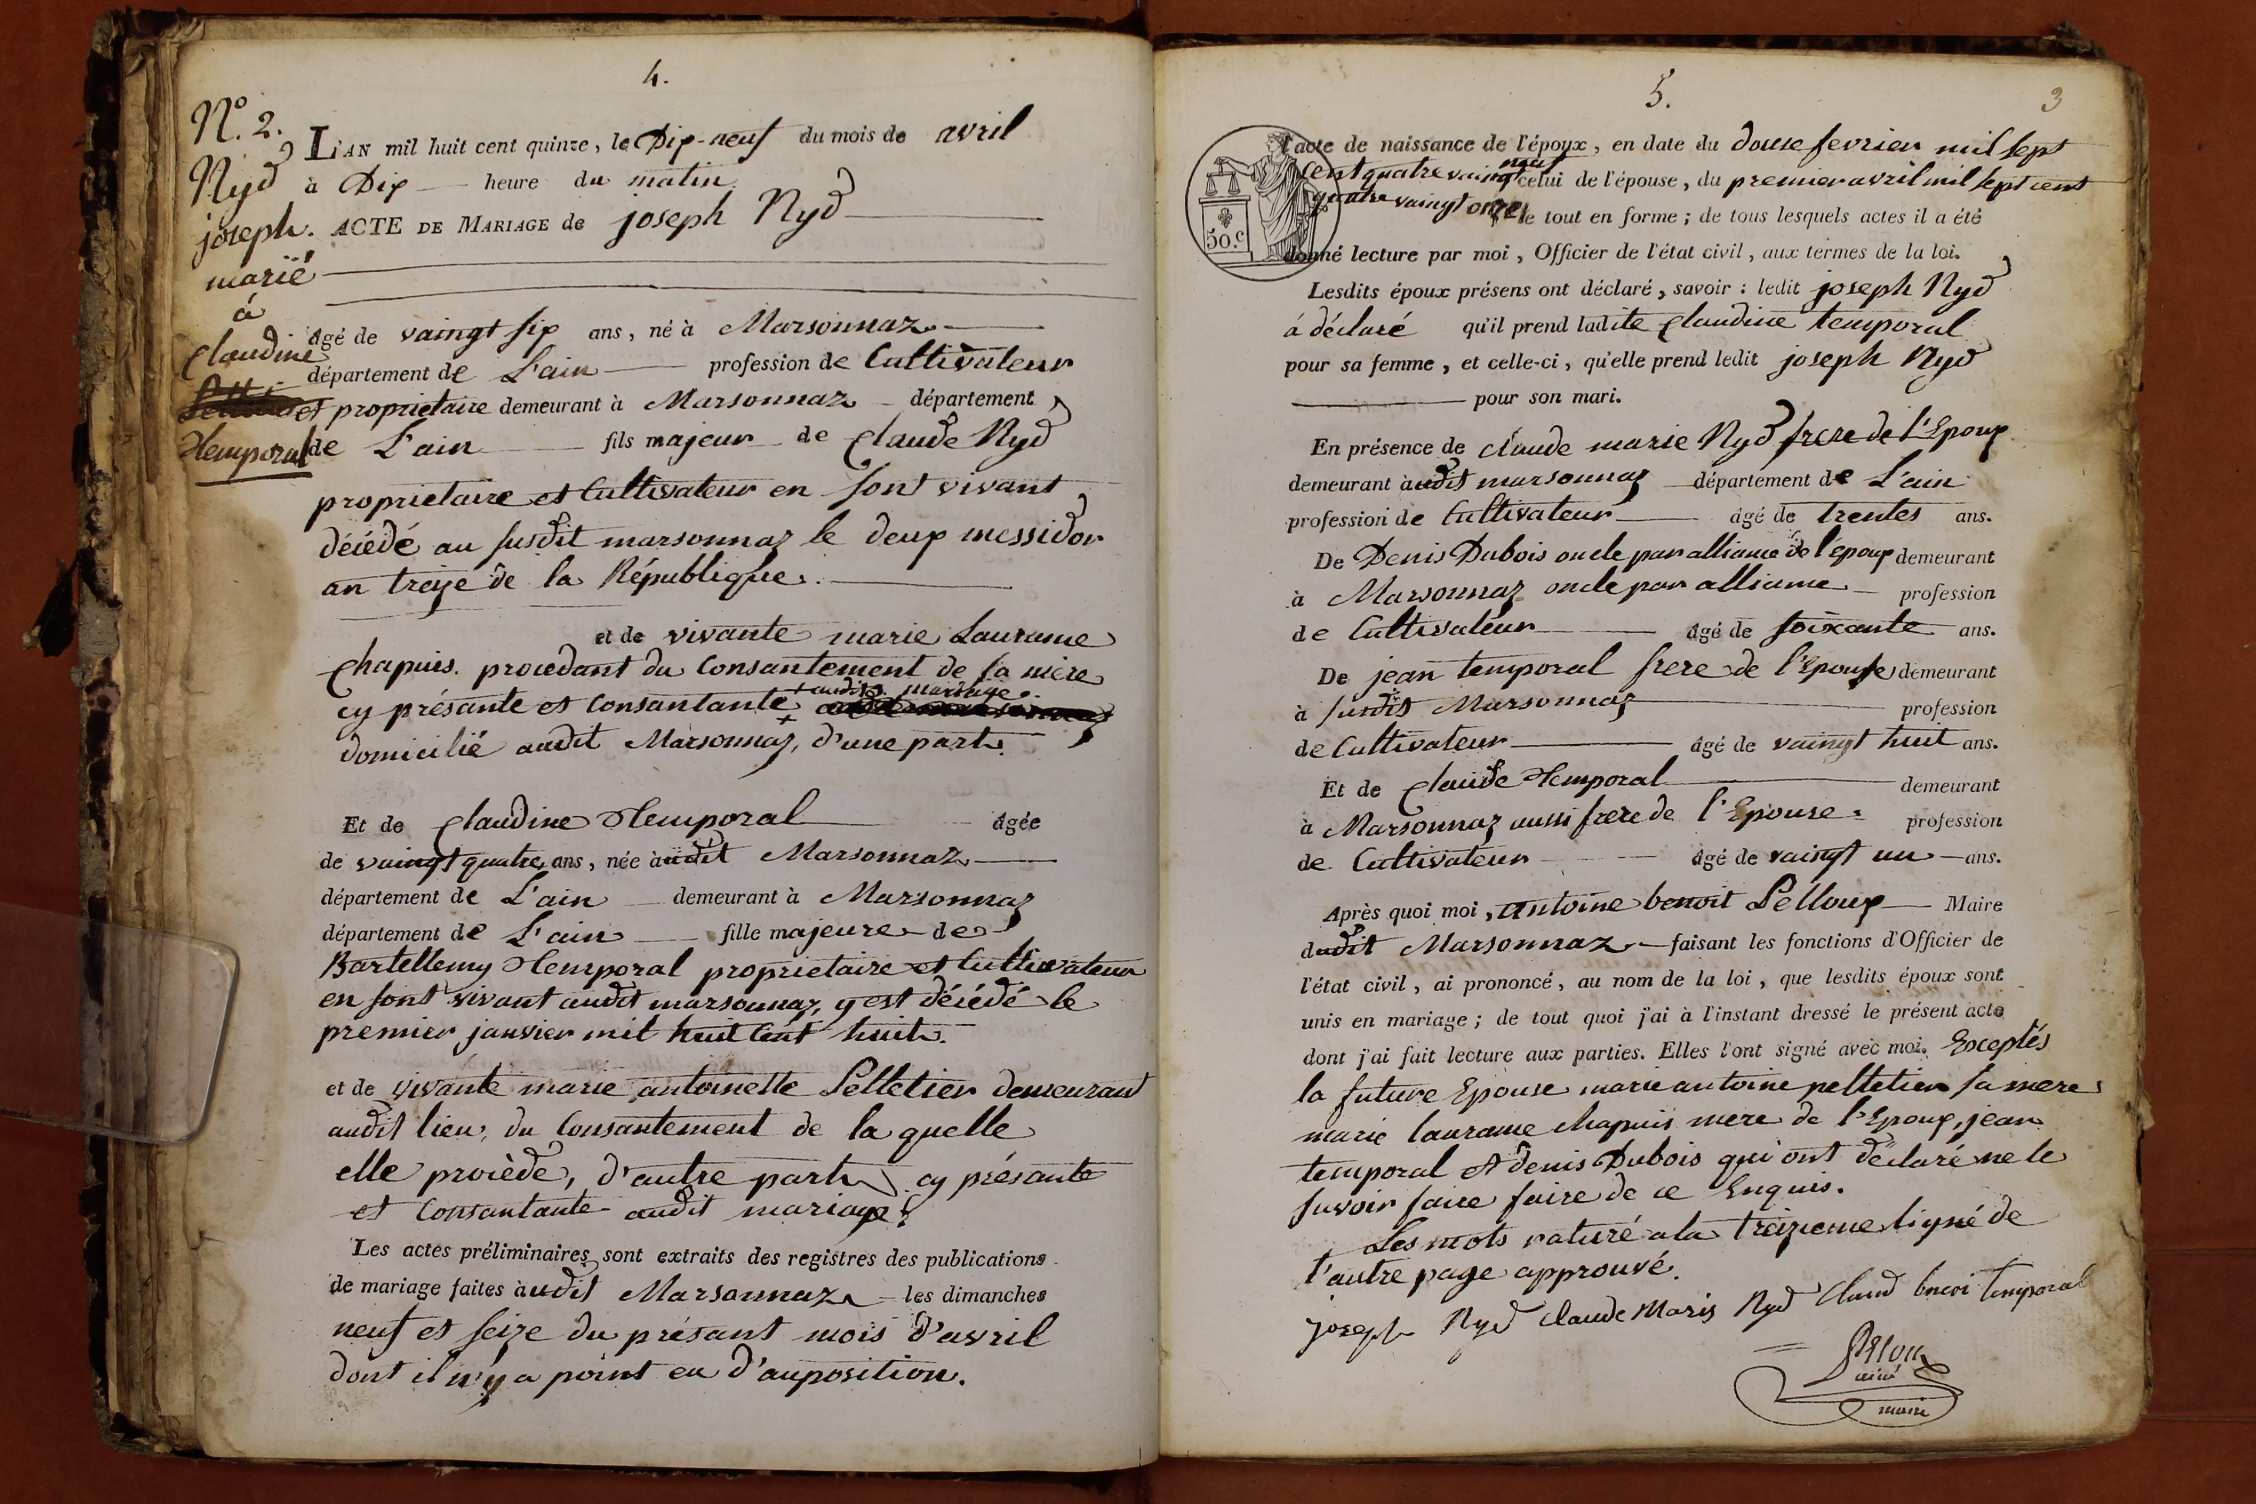 4.
N.° 2.
Nyd
joseph.
marié
à
Claudine
Temporal
L'AN mil huit cent quinze, le Dix-neuf du mois de avril
à Dix heure du matin
ACTE DE MARIAGE de joseph Nyd
âgé de vaingt six ans, né à Marsonnaz
département de L'ain profession de Cultivateur
et proprietaire demeurant à Marsonnaz département
de L'ain fils majeur de Claude Nyd
proprietaire et Cultivateur en sont vivant
décédé au susdit marsonnaz le deux messidor
an treize de la République.
et de vivante marie Laurame
Chapuis. procedant du Consantement de sa mère
cy présante et Consantante + + audit mariage.
domicilié audit Marsonnaz, d'une part.
Et de Claudine Temporal âgée
de vaingt quatre ans, née audit Marsonnaz
département de L'ain demeurant à Marsonnaz
département de L'ain fille majeure de
Bartellemy Temporal proprietaire et Cultivateur
en sont vivant audit marsonnaz, y est décédé le
premier janvier mil huit Cent huit.
et de vivante marie antoinette Pelletier demeurant
audit lieu, du Consantement de la quelle
elle procède, d'autre part cy présante
et Consantante audit mariage
Les actes préliminaires sont extraits des registres des publications
de mariage faites audit Marsonnaz les dimanches
neuf et seize du présant mois d'avril
dont il n'y a point eu d'auposition.
5.
3
50.c
l'acte de naissance de l'époux, en date du douse fevrier mil sept
Cent quatre vaingt neuf celui de l'épouse, du premier avril mil sept cent
quatre vaingt onze le tout en forme ; de tous lesquels actes il a été
donné lecture par moi, Officier de l'état civil, aux termes de la loi.
Lesdits époux présens ont déclaré, savoir : ledit joseph Nyd
á déclaré qu'il prend ladite Claudine temporal
pour sa femme, et celle-ci, qu'elle prend ledit joseph Nyd
pour son mari.
En présence de claude marie Nyd frere de l'Epoux
demeurant audit marsonnaz département de L'ain
profession de Cultivateur âgé de trentes ans.
De Denis Dubois oncle par alliance de l'epoux demeurant
à Marsonnaz oncle par alliance profession
de Cultivateur âgé de soixante ans.
De jean temporal frere de l'Epouse demeurant
à susdit Marsonnaz profession
de Cultivateur âgé de vaingt huit ans.
Et de Claude Temporal demeurant
à Marsonnaz aussi frere de l'Epouse profession
de Cultivateur âgé de vaingt un ans.
Après quoi moi, antoine benoit Pelloux Maire
dudit Marsonnaz faisant les fonctions d'Officier de
l'état civil, ai prononcé, au nom de la loi, que lesdits époux sont
unis en mariage ; de tout quoi j'ai à l'instant dressé le présent acte
dont j'ai fait lecture aux parties. Elles l'ont signé avec moi. Exceptés
la future Epouse marie antoine pelletier sa mere
marie laurame chapuis mere de l'Epoux, jean
temporal et denis Dubois qui ont déclaré ne le
savoir faire de ce Enquis.
Les mots raturé a la treizieme ligné de
l'autre page approuvé.
joseph Nyd Claude Maris Nyd Claud benoi temporal
maire